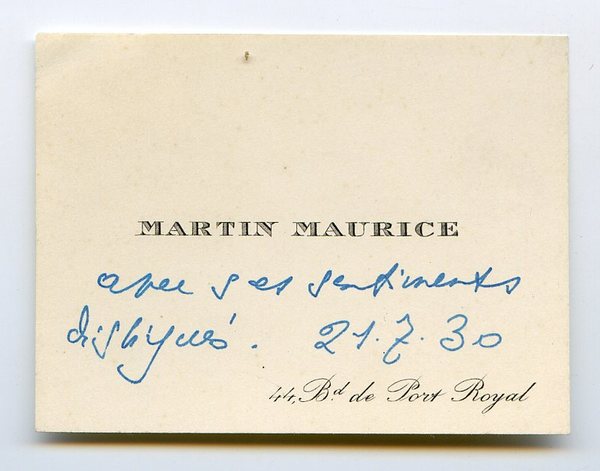 MARTIN MAURICE
avec ses sentiments
distingués. 21.7.30
44, Bd de Port Royal